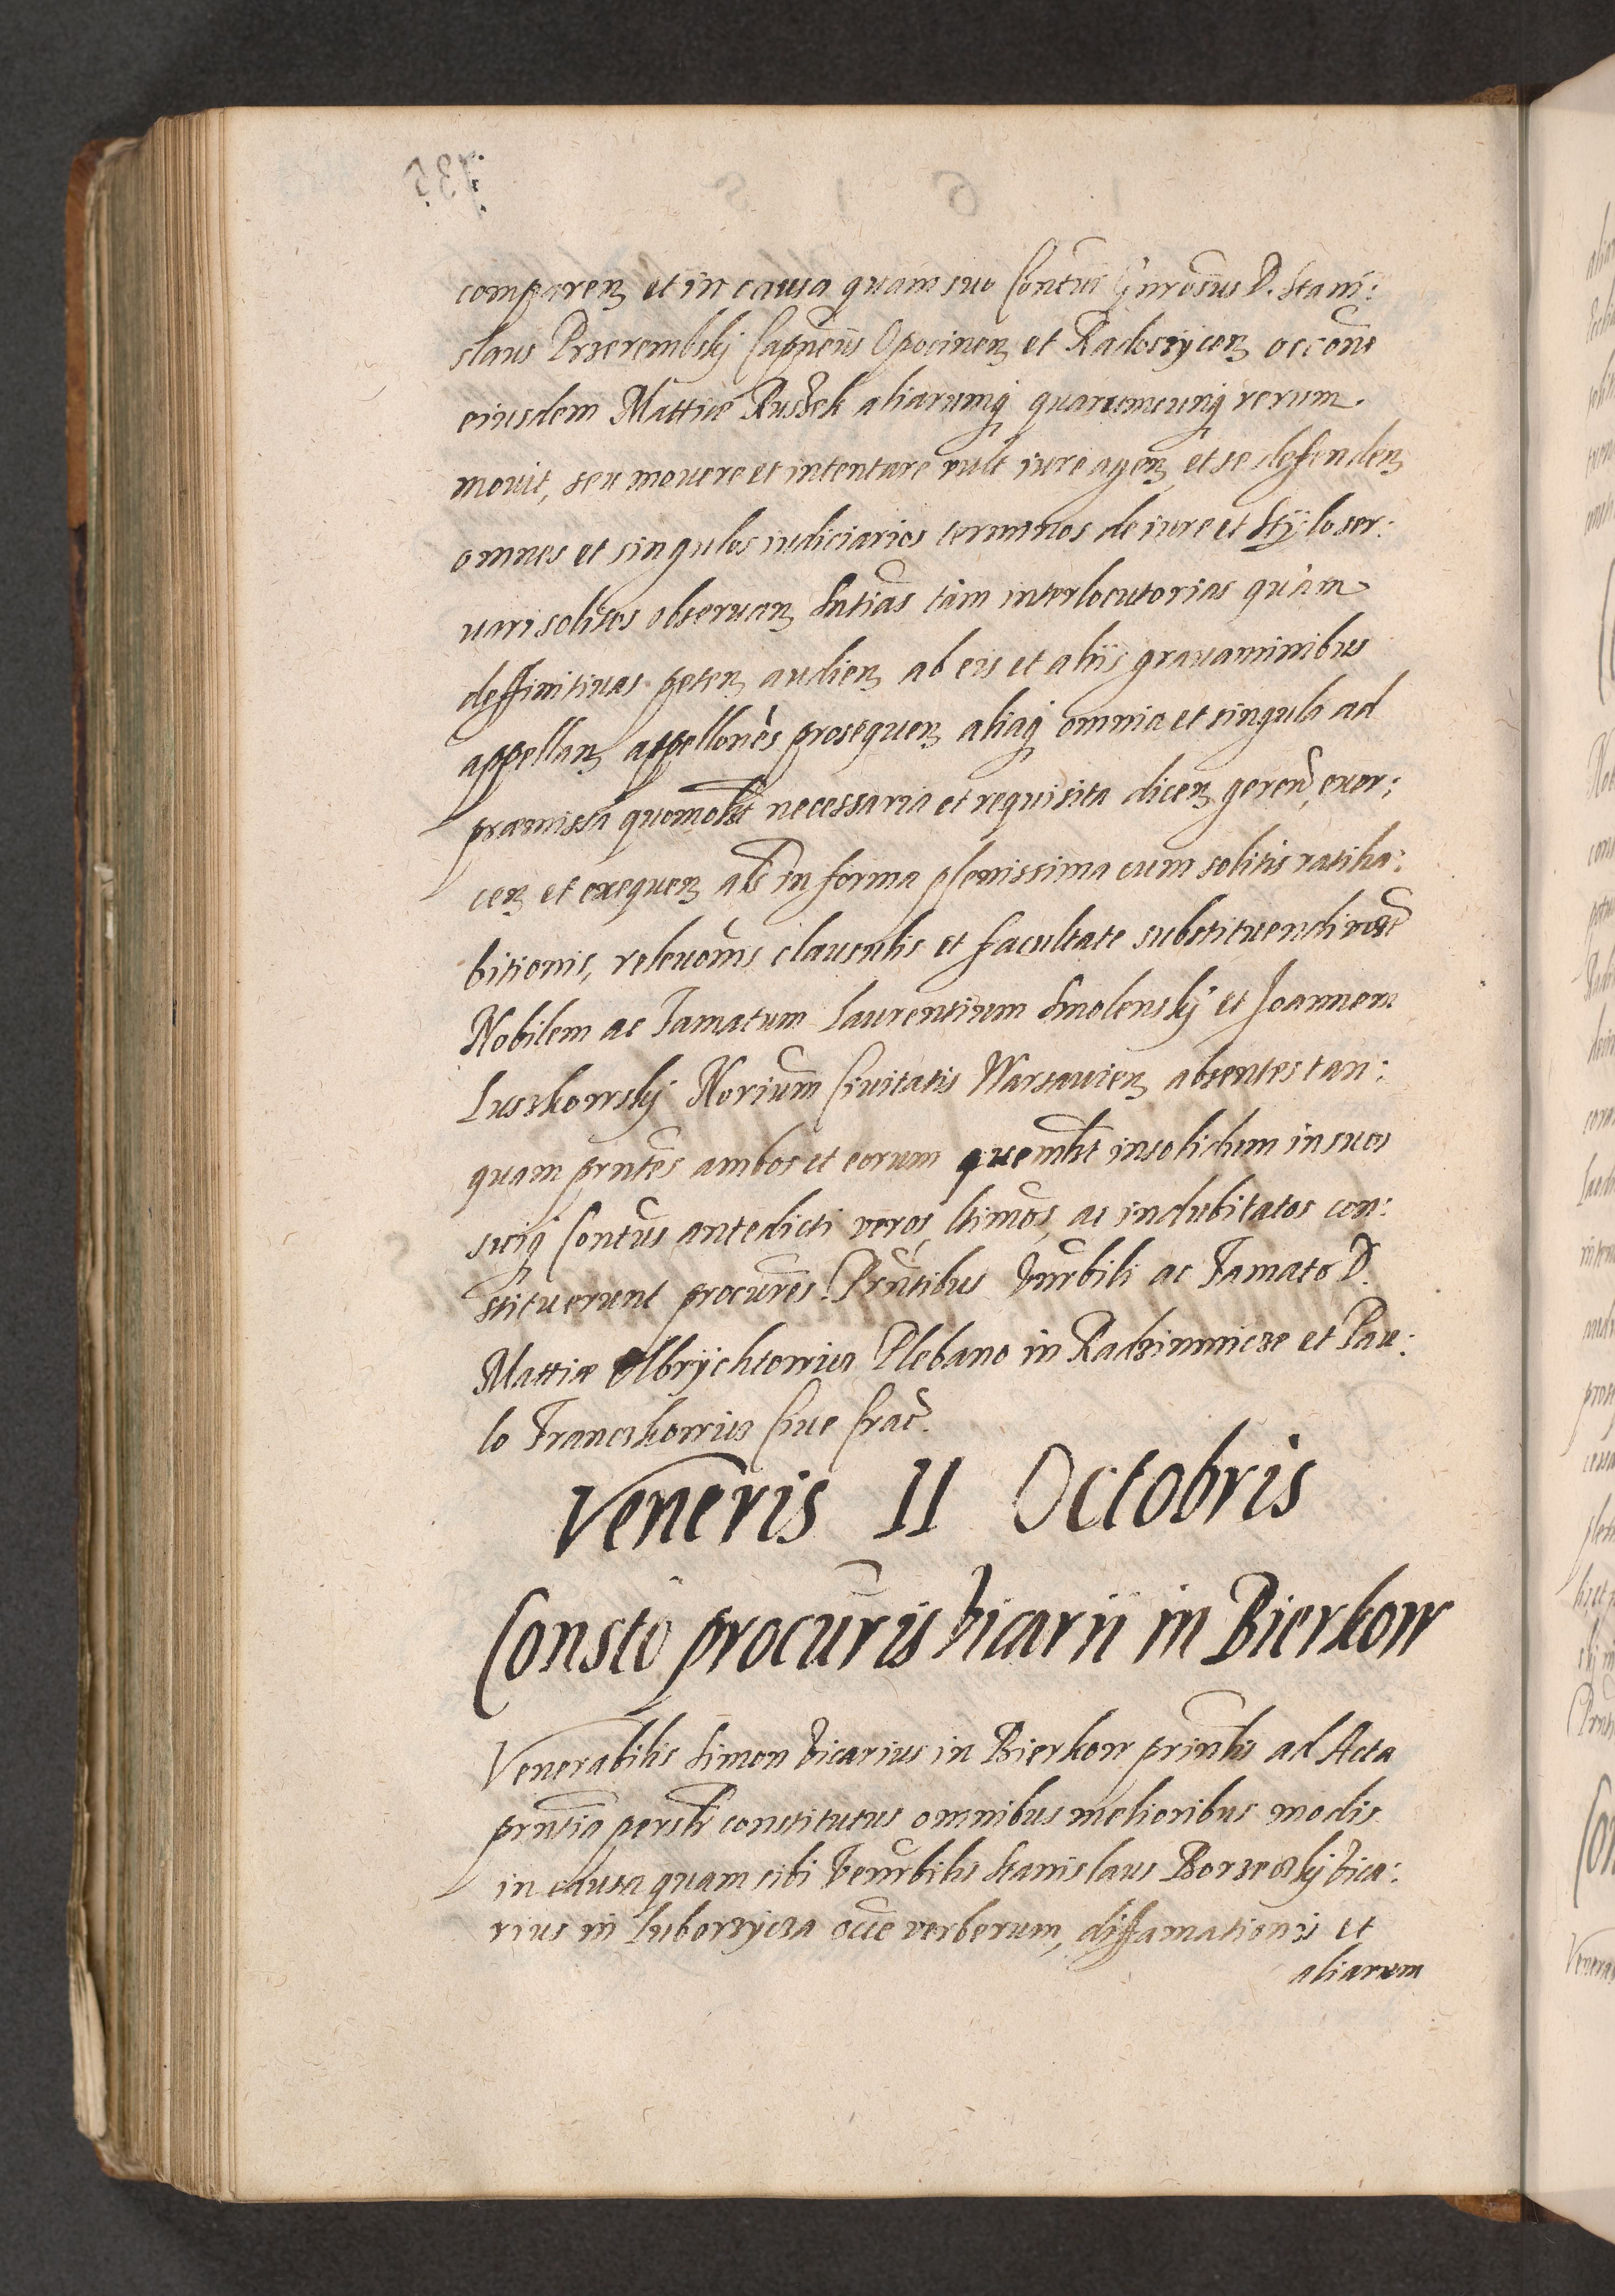 comparenꝫ et in causa quam suo Contui Gnrosus D. Stani:
slaus Przerembskij Capneus Opocinenꝫ et Radoszycenꝫ occone
eiusdem Mattiæ Ruszek aliarumq quarumcunq rerum
mouit, seu mouere et intentare vult iure agenꝫ et se defendenꝫ
omnes et singulos iudiciarios terminos de iure et stijlo ser:
uari solitos obseruanꝫ Sntias tam interlocutorias quàm
deffinitiuas petenꝫ audienꝫ ab eis et alijs grauaminibus
appellanꝫ appellones prosequenꝫ aliaq omnia et singula ad
præmissa quomolt necessaria et requisita dicenꝫ geren, exer:
cenꝫ et exequenꝫ als in forma plenissima cum solitis ratiha:
bitionis, releuonis clausulis et facultate substituendi
Nobilem ac Famatum Laurentium Smolenskij et Joannem
Luszkowskij Norium Ciuitatis Warsauienꝫ absentes tan:
quam prntes ambos et eorum quemlt insolidum in suos
suiq Contus antedicti veros, ltimos, ac indubitatos con:
stituerunt procures. Prntibus Vnrbili ac Famato D.
Mattia Olbrijchtowicz Plebano in Radziemicze et Pau:
lo Franczkowicz Ciue Crac.
Veneris 11 Octobris
Consto procuris Vicarii in Bierkow
Venerabilis Simon Vicarius in Bierkow prinlis ad Acta
prntia persr constitutus omnibus melioribus modis
in causa quam sibi Venrbilis Stanislaus Borzeczkij Vica:
rius in Luborzijcza occe verberum, diffamationis et
aliarum